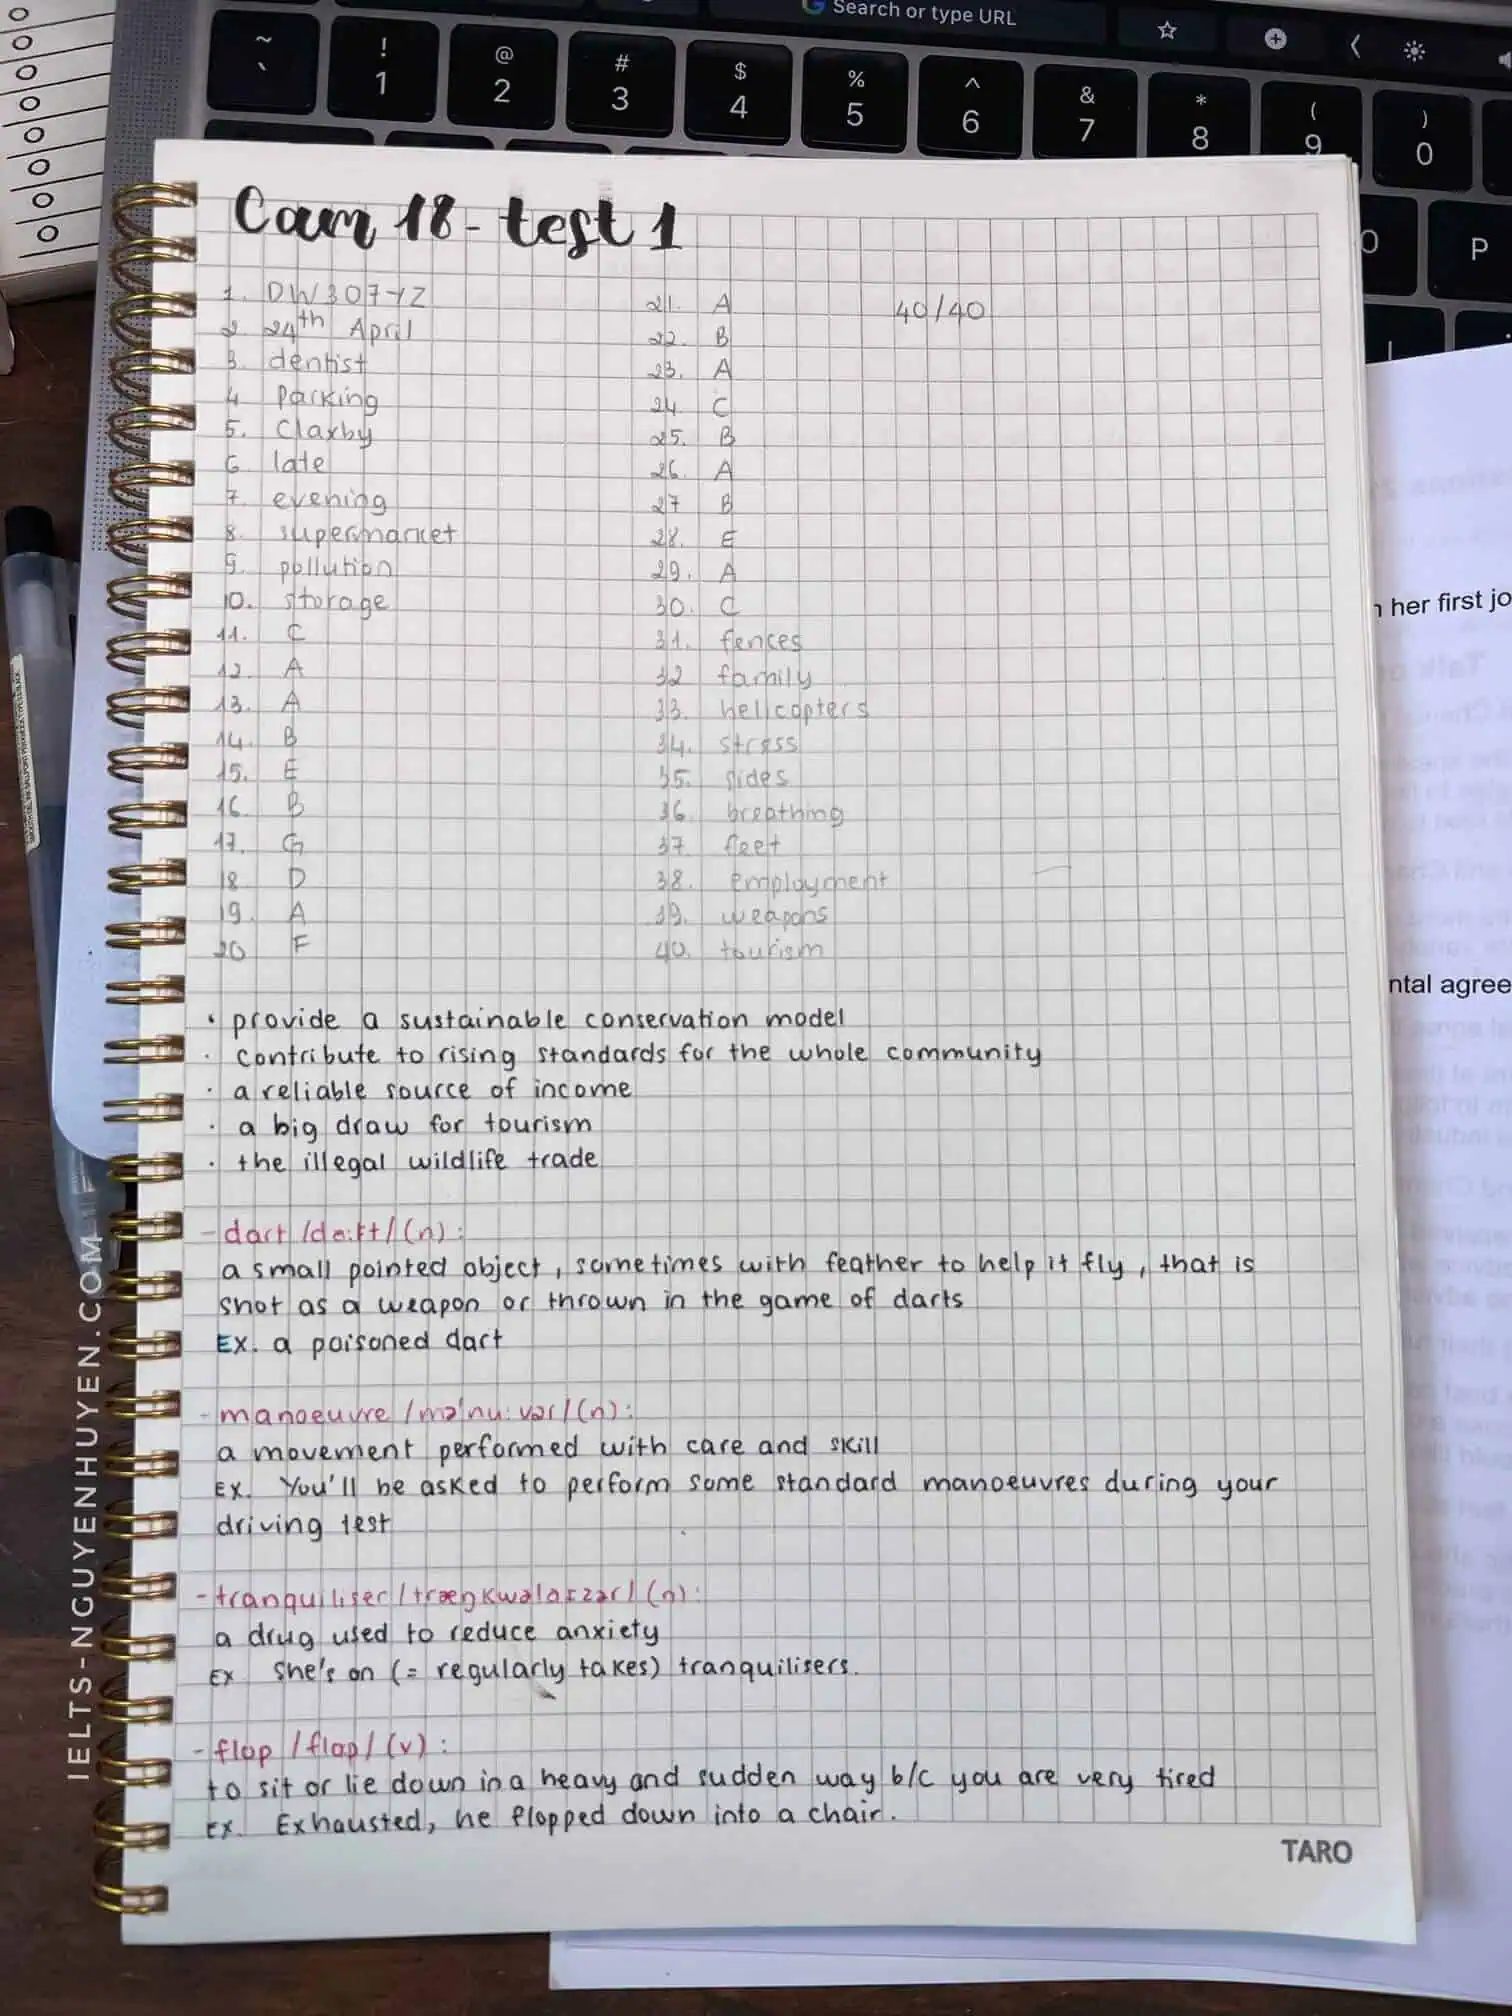 Search or type URL
~ ! @ # $ % ^ & * ( )
` 1 2 3 4 5 6 7 8 9 0
P
Cam 18 - test 1
40/40
1. DW307YZ
2 24th April
3. dentist
4 parking
5. Claxby
6 late
7. evening
8. supermarket
9. pollution
10. storage
11. C
12. A
13. A
14. B
15. E
16. B
17. G
18 D
19. A
20 F
21. A
22. B
23. A
24 C
25. B
26. A
27 B
28. E
29. A
30. C
31. fences
32 family
33. helicopters
34. stress
35. sides
36. breathing
37. feet
38. employment
39. weapons
40. tourism
· provide a sustainable conservation model
· contribute to rising standards for the whole community
· a reliable source of income
· a big draw for tourism
· the illegal wildlife trade
- dart /dɑːrt/ (n):
a small pointed object, sometimes with feather to help it fly, that is
shot as a weapon or thrown in the game of darts
Ex. a poisoned dart
- manoeuvre /məˈnuːvər/ (n):
a movement performed with care and skill
Ex. You'll be asked to perform some standard manoeuvres during your
driving test
- tranquiliser /træŋkwəlaɪzər/ (n):
a drug used to reduce anxiety
Ex She's on (= regularly takes) tranquilisers.
- flop /flɑp/ (v):
to sit or lie down in a heavy and sudden way b/c you are very tired
Ex. Exhausted, he flopped down into a chair.
TARO
her first jo
ntal agree
IELTS-NGUYENHUYEN.COM